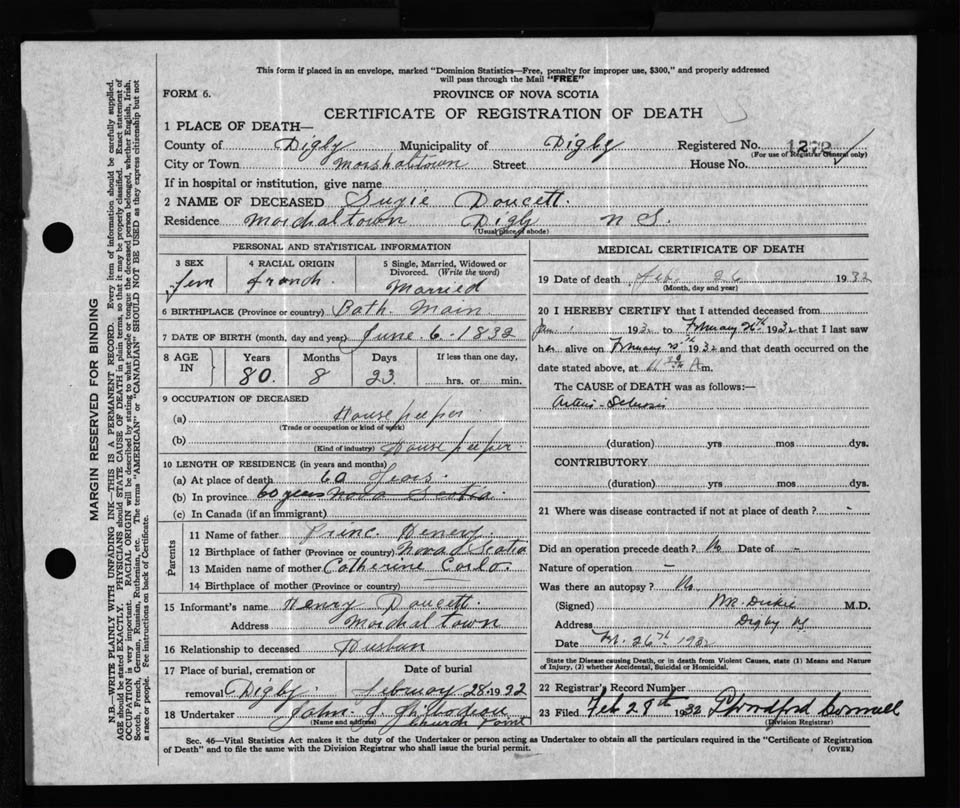 This form if placed in an envelope, marked "Dominion Statistics—Free, penalty for improper use, $300," and properly addressed
will pass through the Mail "FREE"
FORM 6.
PROVINCE OF NOVA SCOTIA
CERTIFICATE OF REGISTRATION OF DEATH
1 PLACE OF DEATH—
County of Digby Municipality of Digby Registered No. 1272
(For use of Registrar General only)
City or Town Marshaltown Street House No.
If in hospital or institution, give name
2 NAME OF DECEASED Suzie Doucett.
Residence Marshaltown Digby N S.
(Usual place of abode)
PERSONAL AND STATISTICAL INFORMATION
3 SEX
fem
4 RACIAL ORIGIN
franch.
5 Single, Married, Widowed or
Divorced. (Write the word)
Married
6 BIRTHPLACE (Province or country) Bath. Main
7 DATE OF BIRTH (month, day and year) June. 6. 1832
8 AGE IN
Years Months Days If less than one day,
80. 8 23 hrs. or min.
9 OCCUPATION OF DECEASED
(a) House peeper
(Trade or occupation or kind of work)
(b) House peeper
(Kind of industry)
10 LENGTH OF RESIDENCE (in years and months)
(a) At place of death 60 Years.
(b) In province 60 years Nova Scotia.
(c) In Canada (if an immigrant)
Parents
11 Name of father Princ Henery
12 Birthplace of father (Province or country) Nova Scotia
13 Maiden name of mother Catherine
14 Birthplace of mother (Province or country)
15 Informant's name Henry Doucett.
Address Marshaltown
16 Relationship to deceased Husban
17 Place of burial, cremation or
removal Digby.
Date of burial
February 28 1932
18 Undertaker John
(Name and address) Church Point
MEDICAL CERTIFICATE OF DEATH
19 Date of death Feb. 26 1932
(Month, day and year)
20 I HEREBY CERTIFY that I attended deceased from
Jan 1 1932 to February 26th 1932 that I last saw
her alive on February 25th 1932 and that death occurred on the
date stated above, at 11 A m.
The CAUSE OF DEATH was as follows:—
Arterio-Sclerosis
(duration) yrs mos dys.
CONTRIBUTORY
(duration) yrs mos dys.
21 Where was disease contracted if not at place of death? -
Did an operation precede death? No Date of -
Nature of operation -
Was there an autopsy? No
(Signed) Dickie M.D.
Address Digby NS
Date Feb. 26th 1932
State the Disease causing Death, or in death from Violent Causes, state (1) Means and Nature
of Injury, (2) whether Accidental, Suicidal or Homicidal.
22 Registrar's Record Number
23 Filed Feb 29th 1932
(Division Registrar)
Sec. 46—Vital Statistics Act makes it the duty of the Undertaker or person acting as Undertaker to obtain all the particulars required in the "Certificate of Registration
of Death" and to file the same with the Division Registrar who shall issue the burial permit.
(OVER)
MARGIN RESERVED FOR BINDING
N.B.—WRITE PLAINLY WITH UNFADING INK—THIS IS A PERMANENT RECORD. Every item of information should be carefully supplied.
AGE should be stated EXACTLY. PHYSICIANS should STATE CAUSE OF DEATH in plain terms, so that it may be properly classified. Exact statement of
OCCUPATION is very important. RACIAL ORIGIN will be described by stating to what people or tongue the deceased person belonged, whether English, Irish,
Scotch, French, German, Russian, Ruthenian, etc. The terms "AMERICAN" or "CANADIAN" SHOULD NOT BE USED as they express citizenship but not
a race or people. See instructions on back of Certificate.